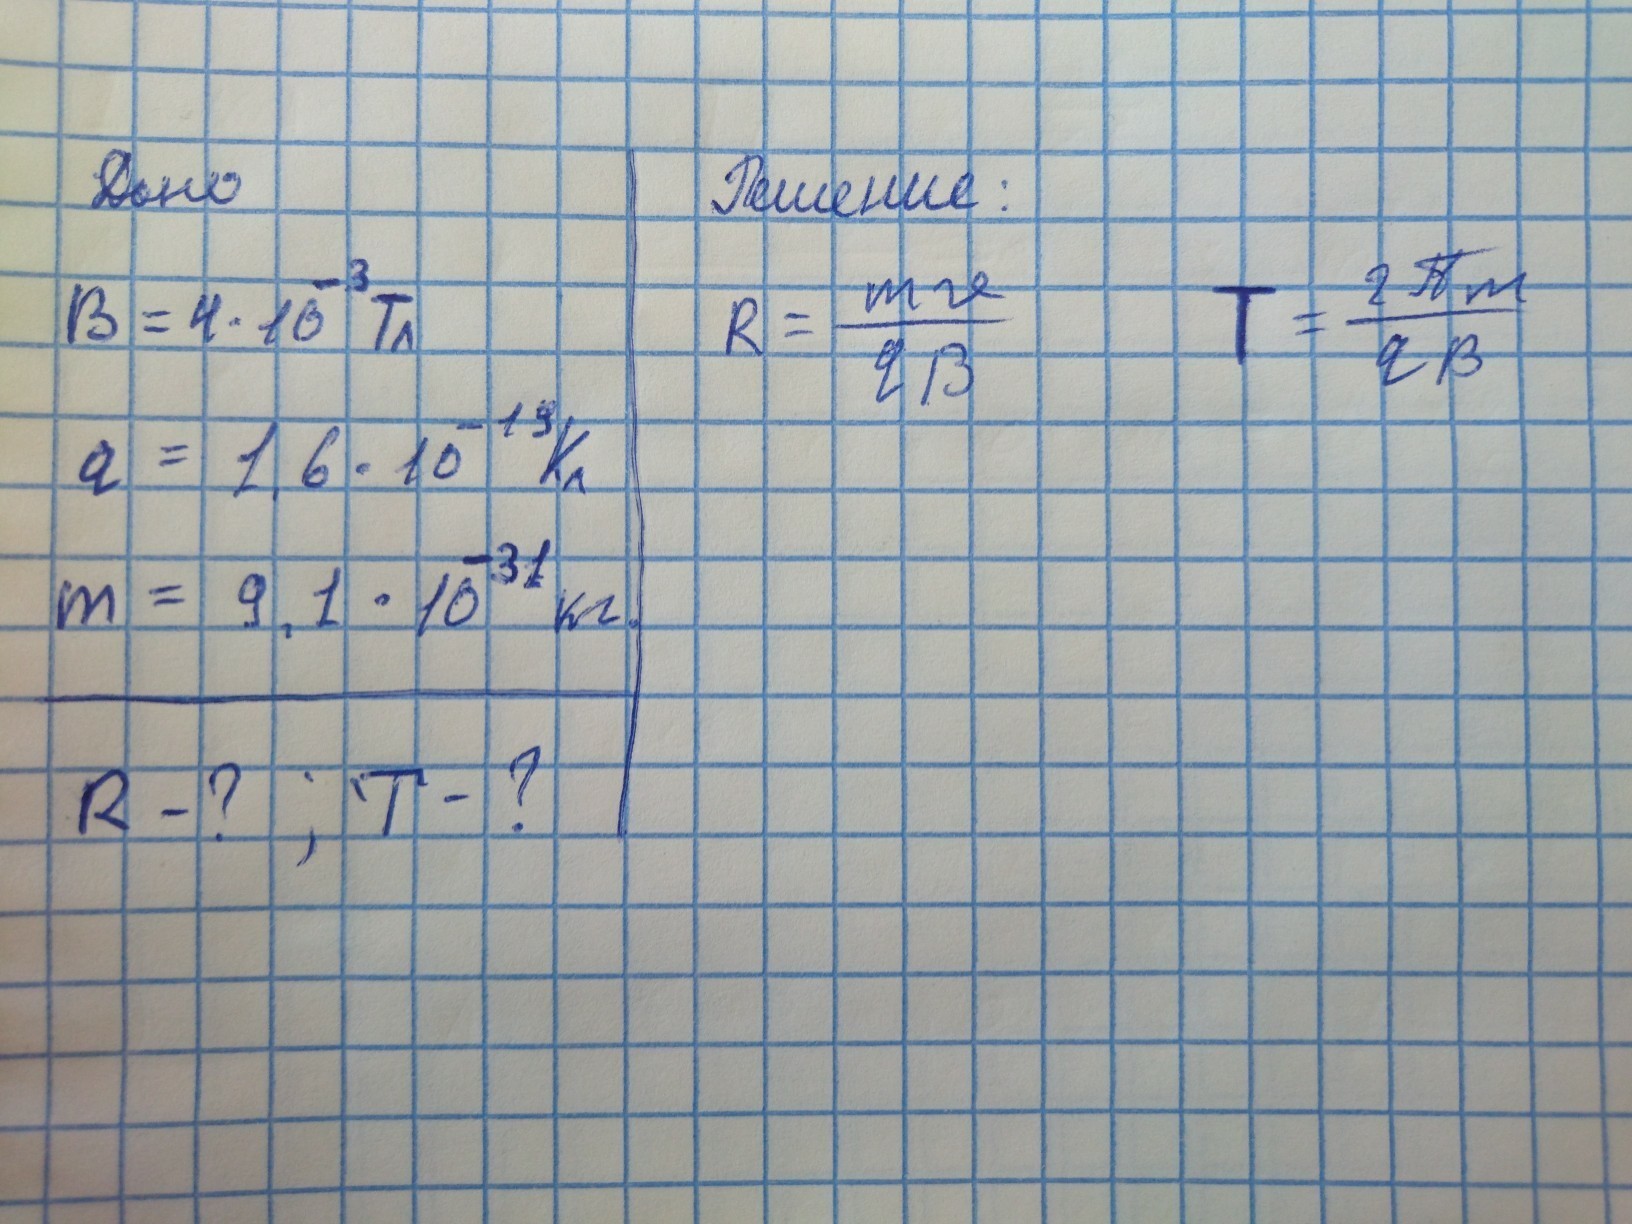 Дано
B = 4 · 10⁻³ Тл
q = 1,6 · 10⁻¹⁹ Кл
m = 9,1 · 10⁻³¹ кг.
R - ? ; T - ?
Решение:
R = mv / qB
T = 2πm / qB